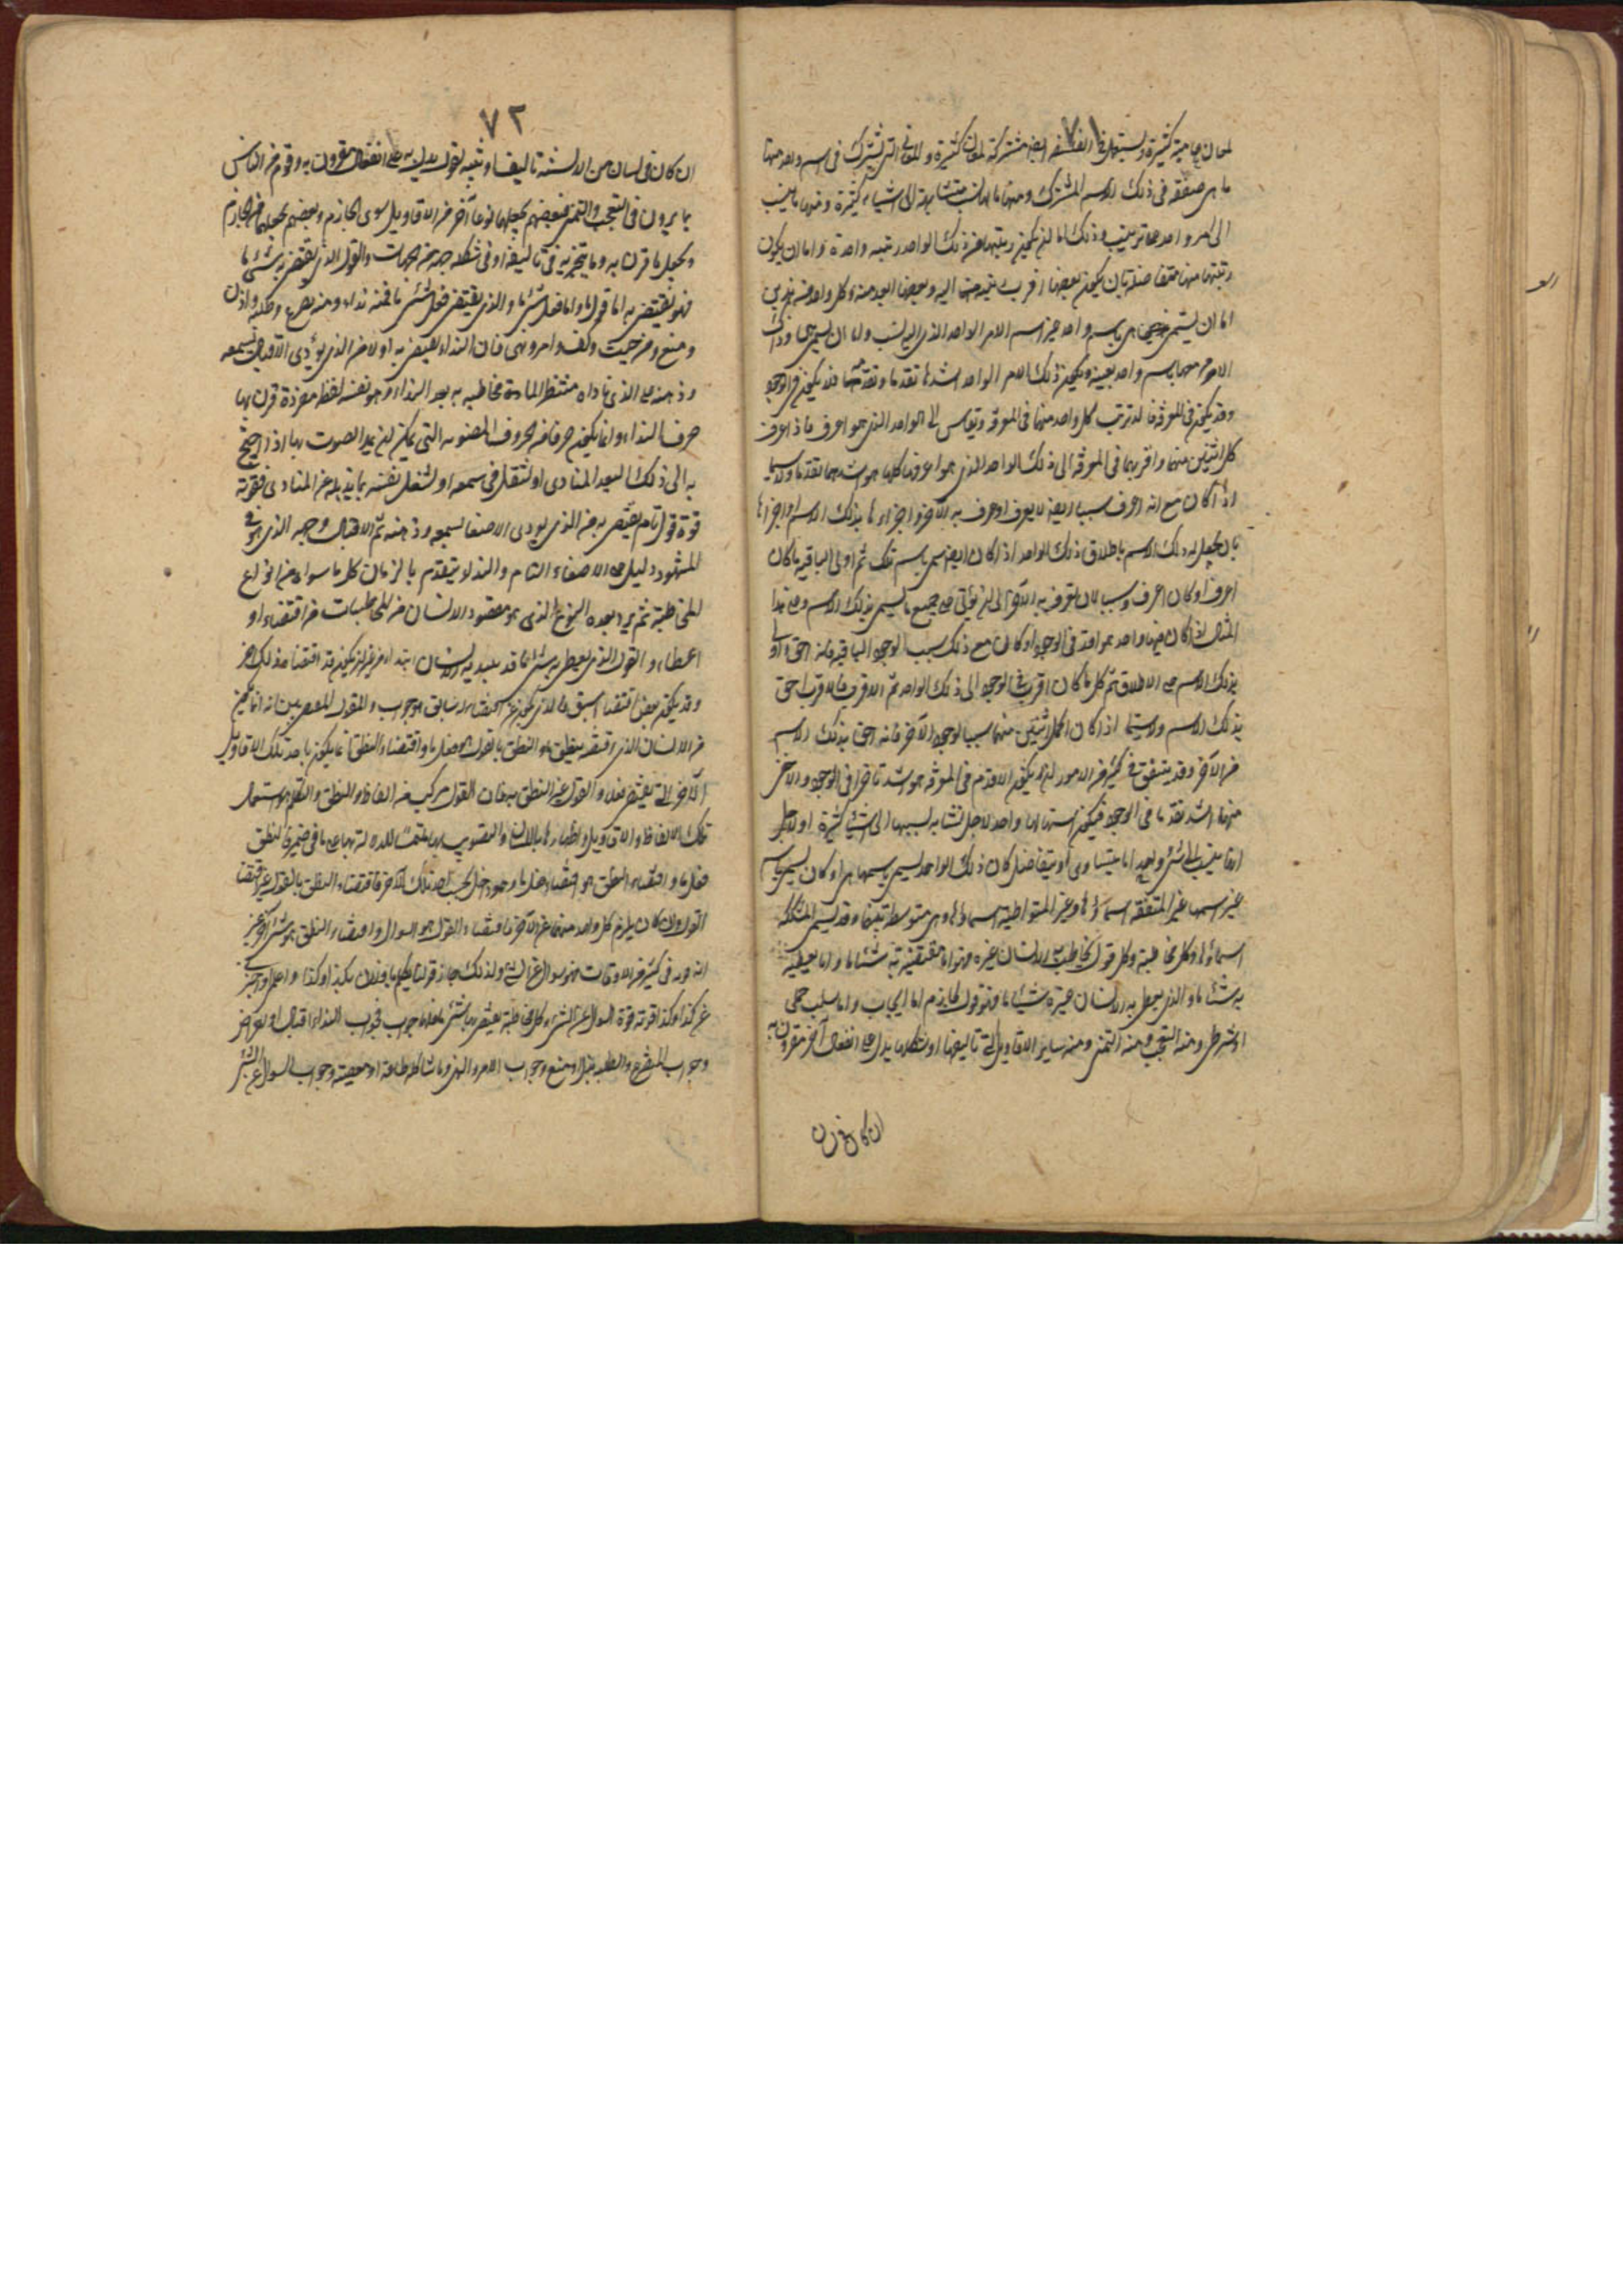 لمعان عامية كثيرة ويستعمل في الفلسفة ايضا مشتركة لمعان كثيرة والمعاني التي تشترك في اسم واحد منها
ما هي متفقة في ذلك الاسم المشترك ومنها ما لها نسب متشابهة الى اشياء كثيرة ومنها ما ينسب
الى امر واحد على ترتيب وذلك اما ان يكون رتبتها من ذلك الواحد رتبة واحدة واما ان يكون
رتبتها منها متفاضلة بان يكون بعضها اقرب رتبة منها اليه وبعضها ابعد منه وكل واحد من هذين
اما ان يسمى هي باسم واحد غير اسم الامر الواحد الذي اليه نسب واما ان يسمى هي وذلك
الامر معها باسم واحد بعينه ويكون ذلك الامر الواحد اشدها تقدما وتقدمها قد يكون في الوجود
وقد يكون في المعرفة ترتب كل واحد منها في المعرفة ويقاس الى الواحد الذي هو اعرف فاذ اعرف
كل اثنين منها واقربهما في المعرفة الى ذلك الواحد الذي هو اعرف كلها هو اشدهما تقدما ولا سيما
اذا كان مع انه اعرف سببا ايضا لان يعرف او عرف به الآخر واحراها بذلك الاسم واحراها
بان يجعل له ذلك الاسم باطلاق ذلك الواحد اذا كان ايضا يسمى باسم تلك ثم اولى الباقية ما كان
اعرف او كان اعرف وسببا لان يعرف به الآخر الى ان يؤتى على جميع ما يسمى بذلك الاسم وعلى هذا
المثال اذا كان فيها واحد هو اقدم في الوجود او كان مع ذلك سبب الوجود الباقية فانه احق واولى
بذلك الاسم على الاطلاق ثم كل ما كان اقرب في الوجود الى ذلك الواحد ثم الاقرب فالاقرب احق
بذلك الاسم ولا سيما اذا كان اكمل اثنين منها سببا لوجود الآخر فانه احق بذلك الاسم
من الآخر وقد يتفق في كثير من الامور ان يكون الاقدم في المعرفة هو اشد تأخرا في الوجود والآخر
منها اشد تقدما في الوجود فيكون اسمهما واحد لاجل تشابه نسبهما الى اشياء كثيرة او لاجل
انها تنسب الى شيء واحد اما بتساوي او بتفاضل كان ذلك الواحد يسمى باسمها هي او كان يسمى باسم
غير اسمها غير المتفقة اسماؤها وغير المتواطئة اسماؤها وهي متوسطة بينها وقد يسمى المشككة
اسماؤها وكل مخاطبة وكل قول يخاطب به الانسان غيره فهو اما يقتضي به شيئا ما واما يعطيه
به شيئا ما والذي يعطى به الانسان غيره شيئا ما فهو قول جازم اما ايجاب واما سلب حملي
او شرطي ومنه التعجب ومنه التمني ومنه ساير الاقاويل التي تأليفها او شكلها يدل على انفعال آخر مقرون به
ان كان
٧٢
ان كان في لسان من الالسنة تأليف او شبه لقول يدل به على انفعال مقرون به وقوم من الناس
يمارون في التعجب والتمني فبعضهم يجعلها نوعا آخر من الاقاويل سوى الجازم وبعضهم يجعلها من الجازم
ويجعل ما قرن به وما يخبر به في تأليفه او في شكله جهة من الجهات والقول الذي يقتضي به شيئا ما
فهو يقتضي به اما قول ما واما فعل شيء ما والذي يقتضي فعل شيء ما فمنه نداء ومنه تضرع وطلبة واذن
ومنع ومنه حث وكف وامر ونهي فان النداء يقتضي به اولا من الذي نودي الاقبال بسمعه
وذهنه على الذي ناداه منتظرا لما يخاطبه به بعد النداء وهو نفسه لفظة مفردة قرن بها
حرف النداء وانما يكون حرفا من الحروف المصوتة التي يمكن ان يمد الصوت بها اذا احتيج
به الى ذلك لبعد المنادى او لثقل في سمعه او لشغل نفسه بما يذهله عن المنادي فقوته
قوة قول تام يقتضي به من الذي نودي الاصغاء بسمعه وذهنه ثم الاقبال بوجهه الذي هو في
المشهور دليل على الاصغاء التام والنداء يتقدم بالزمان كل ما سواه من انواع
المخاطبة ثم يرد بعده النوع الذي هو مقصود الانسان من المخاطبات من اقتضاء او
اعطاء والقول الذي يعطى به شيء ما قد يبتدي به الانسان ابتداء من غير ان يكون قد اقتضا ذلك آخر
وقد يكون عن اقتضاء سبق والذي يكون عن اقتضاء سابق هو جواب والقول المقصود من انه انما يكون
من الانسان الذي اقتضي بنطق والنطق بالقول هو فعل ما واقتضاء النطق انما يكون باحد تلك الاقاويل
الآخر التي تقتضي فعلا والقول غير النطق به فان القول مركب من الفاظ والنطق والتكلم هو استعمال
تلك الالفاظ والاقاويل واظهارها باللسان والتصويت بها ملتمسا الدلالة بها على ما في ضميره فالنطق
فعل ما واقتضاء النطق هو اقتضاء فعل ما وهو داخل تحت احد تلك الآخر فاقتضاء النطق بالقول غير اقتضاء
القول وان كان يلزم كل واحد منهما عن الآخر فاقتضاء القول هو السؤال واقتضاء النطق هو شيء آخر غير
انه قوته في كثير من الاوقات قوة سؤال عن الشيء ولذلك جاز قولنا تكلم يا فلان بكذا وكذا واعلمني واخبرني
عن كذا وكذا قوته قوة السؤال عن الشيء وكل مخاطبة يقتضي بها شيء ما فلها جواب فجواب النداء اقبال او اعراض
وجواب التضرع والطلبة بذل او منع وجواب الامر والنهي وما شاكله طاعة او معصية وجواب السؤال عن الشيء